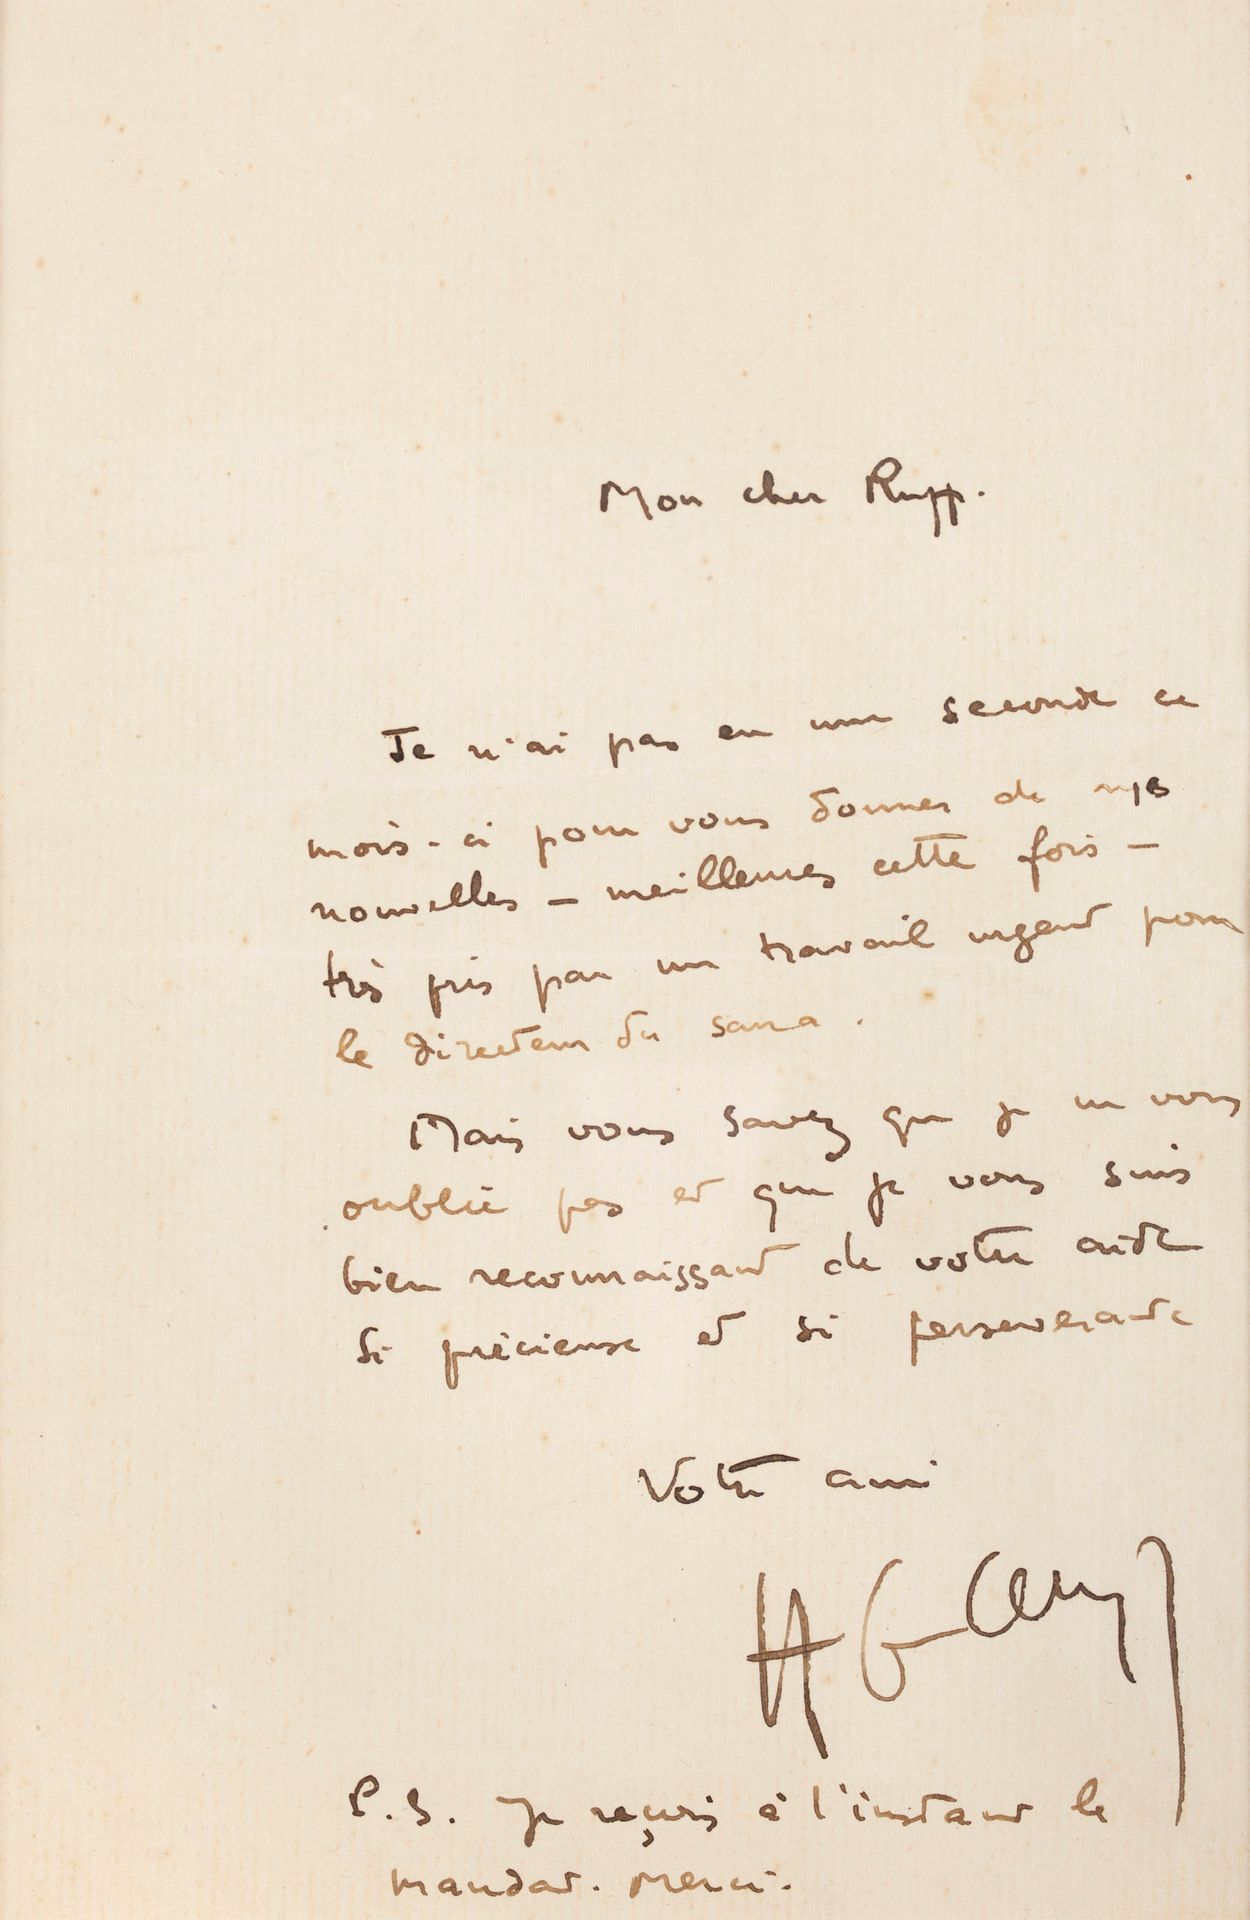 Mon cher Rupp.
Je n'ai pas eu une seconde ce
mois-ci pour vous donner de mes
nouvelles – meilleures cette fois –
très pris par un travail urgent pour
le directeur du sana.
Mais vous savez que je ne vous
oublie pas et que je vous suis
bien reconnaissant de votre aide
si précieuse et si perseverante
Votre ami
P.S. Je reçois à l'instant le
mandat. Merci.